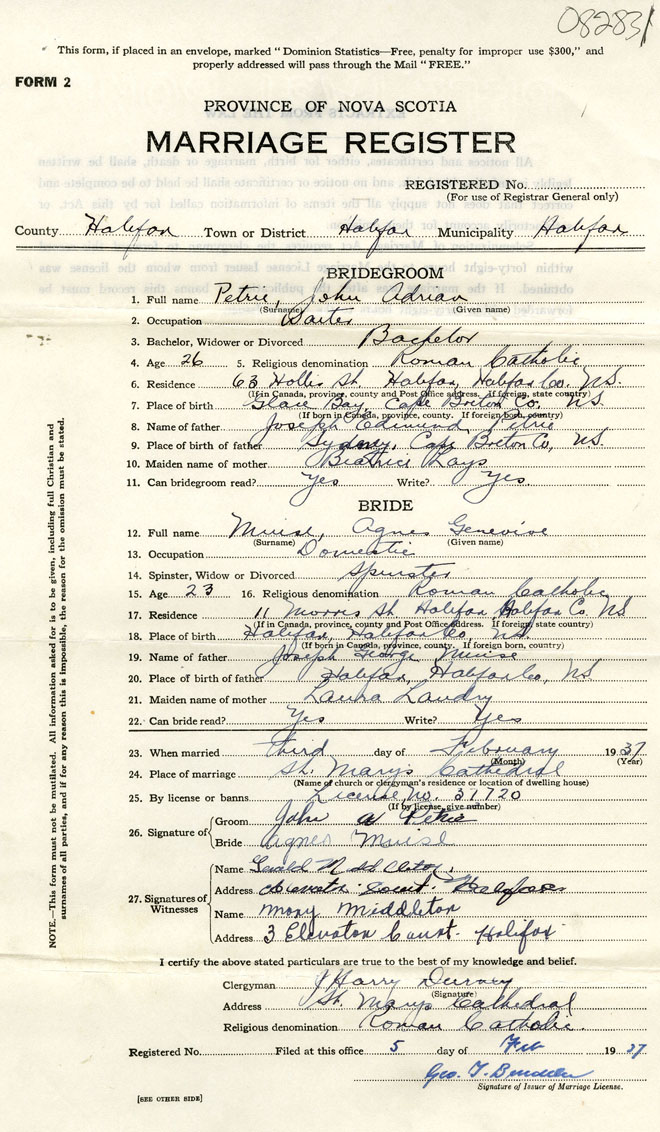 08283
This form, if placed in an envelope, marked "Dominion Statistics—Free, penalty for improper use $300," and
properly addressed will pass through the Mail "FREE."
FORM 2
PROVINCE OF NOVA SCOTIA
MARRIAGE REGISTER
REGISTERED No.
(For use of Registrar General only)
County Halifax Town or District Halifax Municipality Halifax
BRIDEGROOM
1. Full name Petrie, John Adrian
(Surname) (Given name)
2. Occupation
3. Bachelor, Widower or Divorced Bachelor
4. Age 26 5. Religious denomination Roman Catholic
6. Residence 63 Hollis St. Halifax, Halifax Co. N.S.
(If in Canada, province, county and Post Office address. If foreign, state country)
7. Place of birth Glace Bay, Cape Breton Co. N.S.
(If born in Canada, province, county. If foreign born, country)
8. Name of father Joseph Edmund Petrie
9. Place of birth of father Sydney, Cape Breton Co, N.S.
10. Maiden name of mother Beatrice
11. Can bridegroom read? Yes Write? Yes.
BRIDE
12. Full name Muise, Agnes Genevive
(Surname) (Given name)
13. Occupation Domestic
14. Spinster, Widow or Divorced Spinster
15. Age 23 16. Religious denomination Roman Catholic
17. Residence 11 Morris St. Halifax Halifax Co. N.S
(If in Canada, province, county and Post Office address. If foreign state country)
18. Place of birth Halifax, Halifax Co. N.S.
(If born in Canada, province, county. If foreign born, country)
19. Name of father Joseph George Muise
20. Place of birth of father Halifax, Halifax Co, N.S
21. Maiden name of mother Laura Landry
22. Can bride read? Yes Write? Yes
23. When married third day of February 1937
(Month) (Year)
24. Place of marriage St. Mary's Cathedral
(Name of church or clergyman's residence or location of dwelling house)
25. By license or banns License, no. 37720
(If by license, give number)
26. Signature of Groom John A Petrie
Bride Agnes Muise
27. Signatures of Witnesses
Name Gerald M
Address Elevator Court. Halifax
Name Mary Middleton
Address 3 Elevator Court. Halifax
I certify the above stated particulars are true to the best of my knowledge and belief.
Clergyman J Harry Durney
(Signature)
Address St. Mary's Cathedral
Religious denomination Roman Catholic.
Registered No. Filed at this office 5 day of Feb 1937
Geo. T.
Signature of Issuer of Marriage License.
[SEE OTHER SIDE]
NOTE.—This form must not be mutilated. All information asked for is to be given, including full Christian and
surnames of all parties, and if for any reason this is impossible, the reason for the omission must be stated.